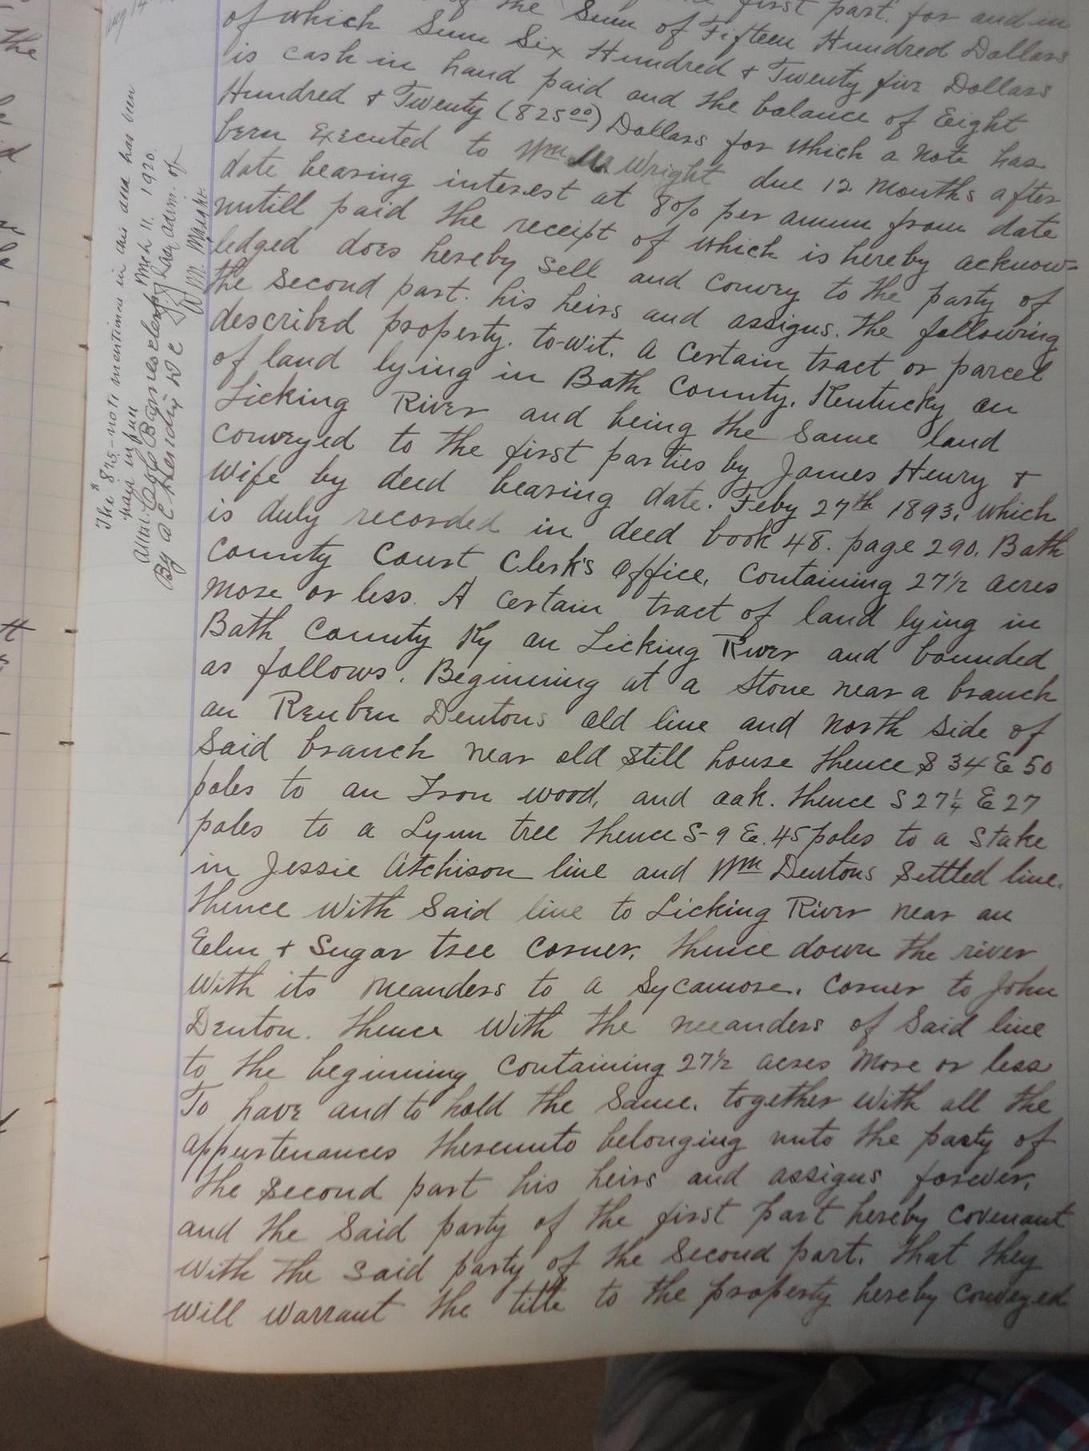 of the Sum of Fifteen Hundred Dollars
of which Sum Six Hundred & Twenty five Dollars
is cash in hand paid and the balance of Eight
Hundred & Twenty (82500) Dollars for which a note has
been Executed to Wm Wright due 12 months after
date bearing interest at 8% per annum from date
untill paid the receipt of which is hereby acknow-
ledged does hereby sell and convey to the party of
the second part. his heirs and assigns. the following
described property. to-wit. A certain tract or parcel
of land lying in Bath County, Kentucky on
Licking River and being the same land
conveyed to the first parties by James Henry &
Wife by deed bearing date. Feby 27th 1893, which
is duly recorded in deed book 48. page 290. Bath
County Court Clerk's Office, Containing 27 1/2 acres
more or less. A certain tract of land lying in
Bath County Ky on Licking River and bounded
as follows. Beginning at a stone near a branch
on Reuben Dentons old line and north side of
Said branch near old still house thence S 34 E 50
poles to an Iron wood, and oak. thence S 27 1/4 E 27
poles to a Lynn tree thence S-9 E. 45 poles to a stake
in Jessie Atchison line and Wm Dentons Settled line.
thence with said line to Licking River near an
Eelm & Sugar tree corner. thence down the river
with its meanders to a Sycamore. corner to John
Denton. thence with the meanders of said line
to the beginning containing 27 1/2 acres more or less
To have and to hold the same. together with all the
appurtenances thereunto belonging unto the party of
the second part his heirs and assigns forever.
and the said party of the first part hereby covenant
with the said party of the second part. that they
will warrant the title to the property hereby conveyed
The $825 note mentioned in this deed has been
paid in full Mch 11. 1920.
adm. of
By
Wm Wright